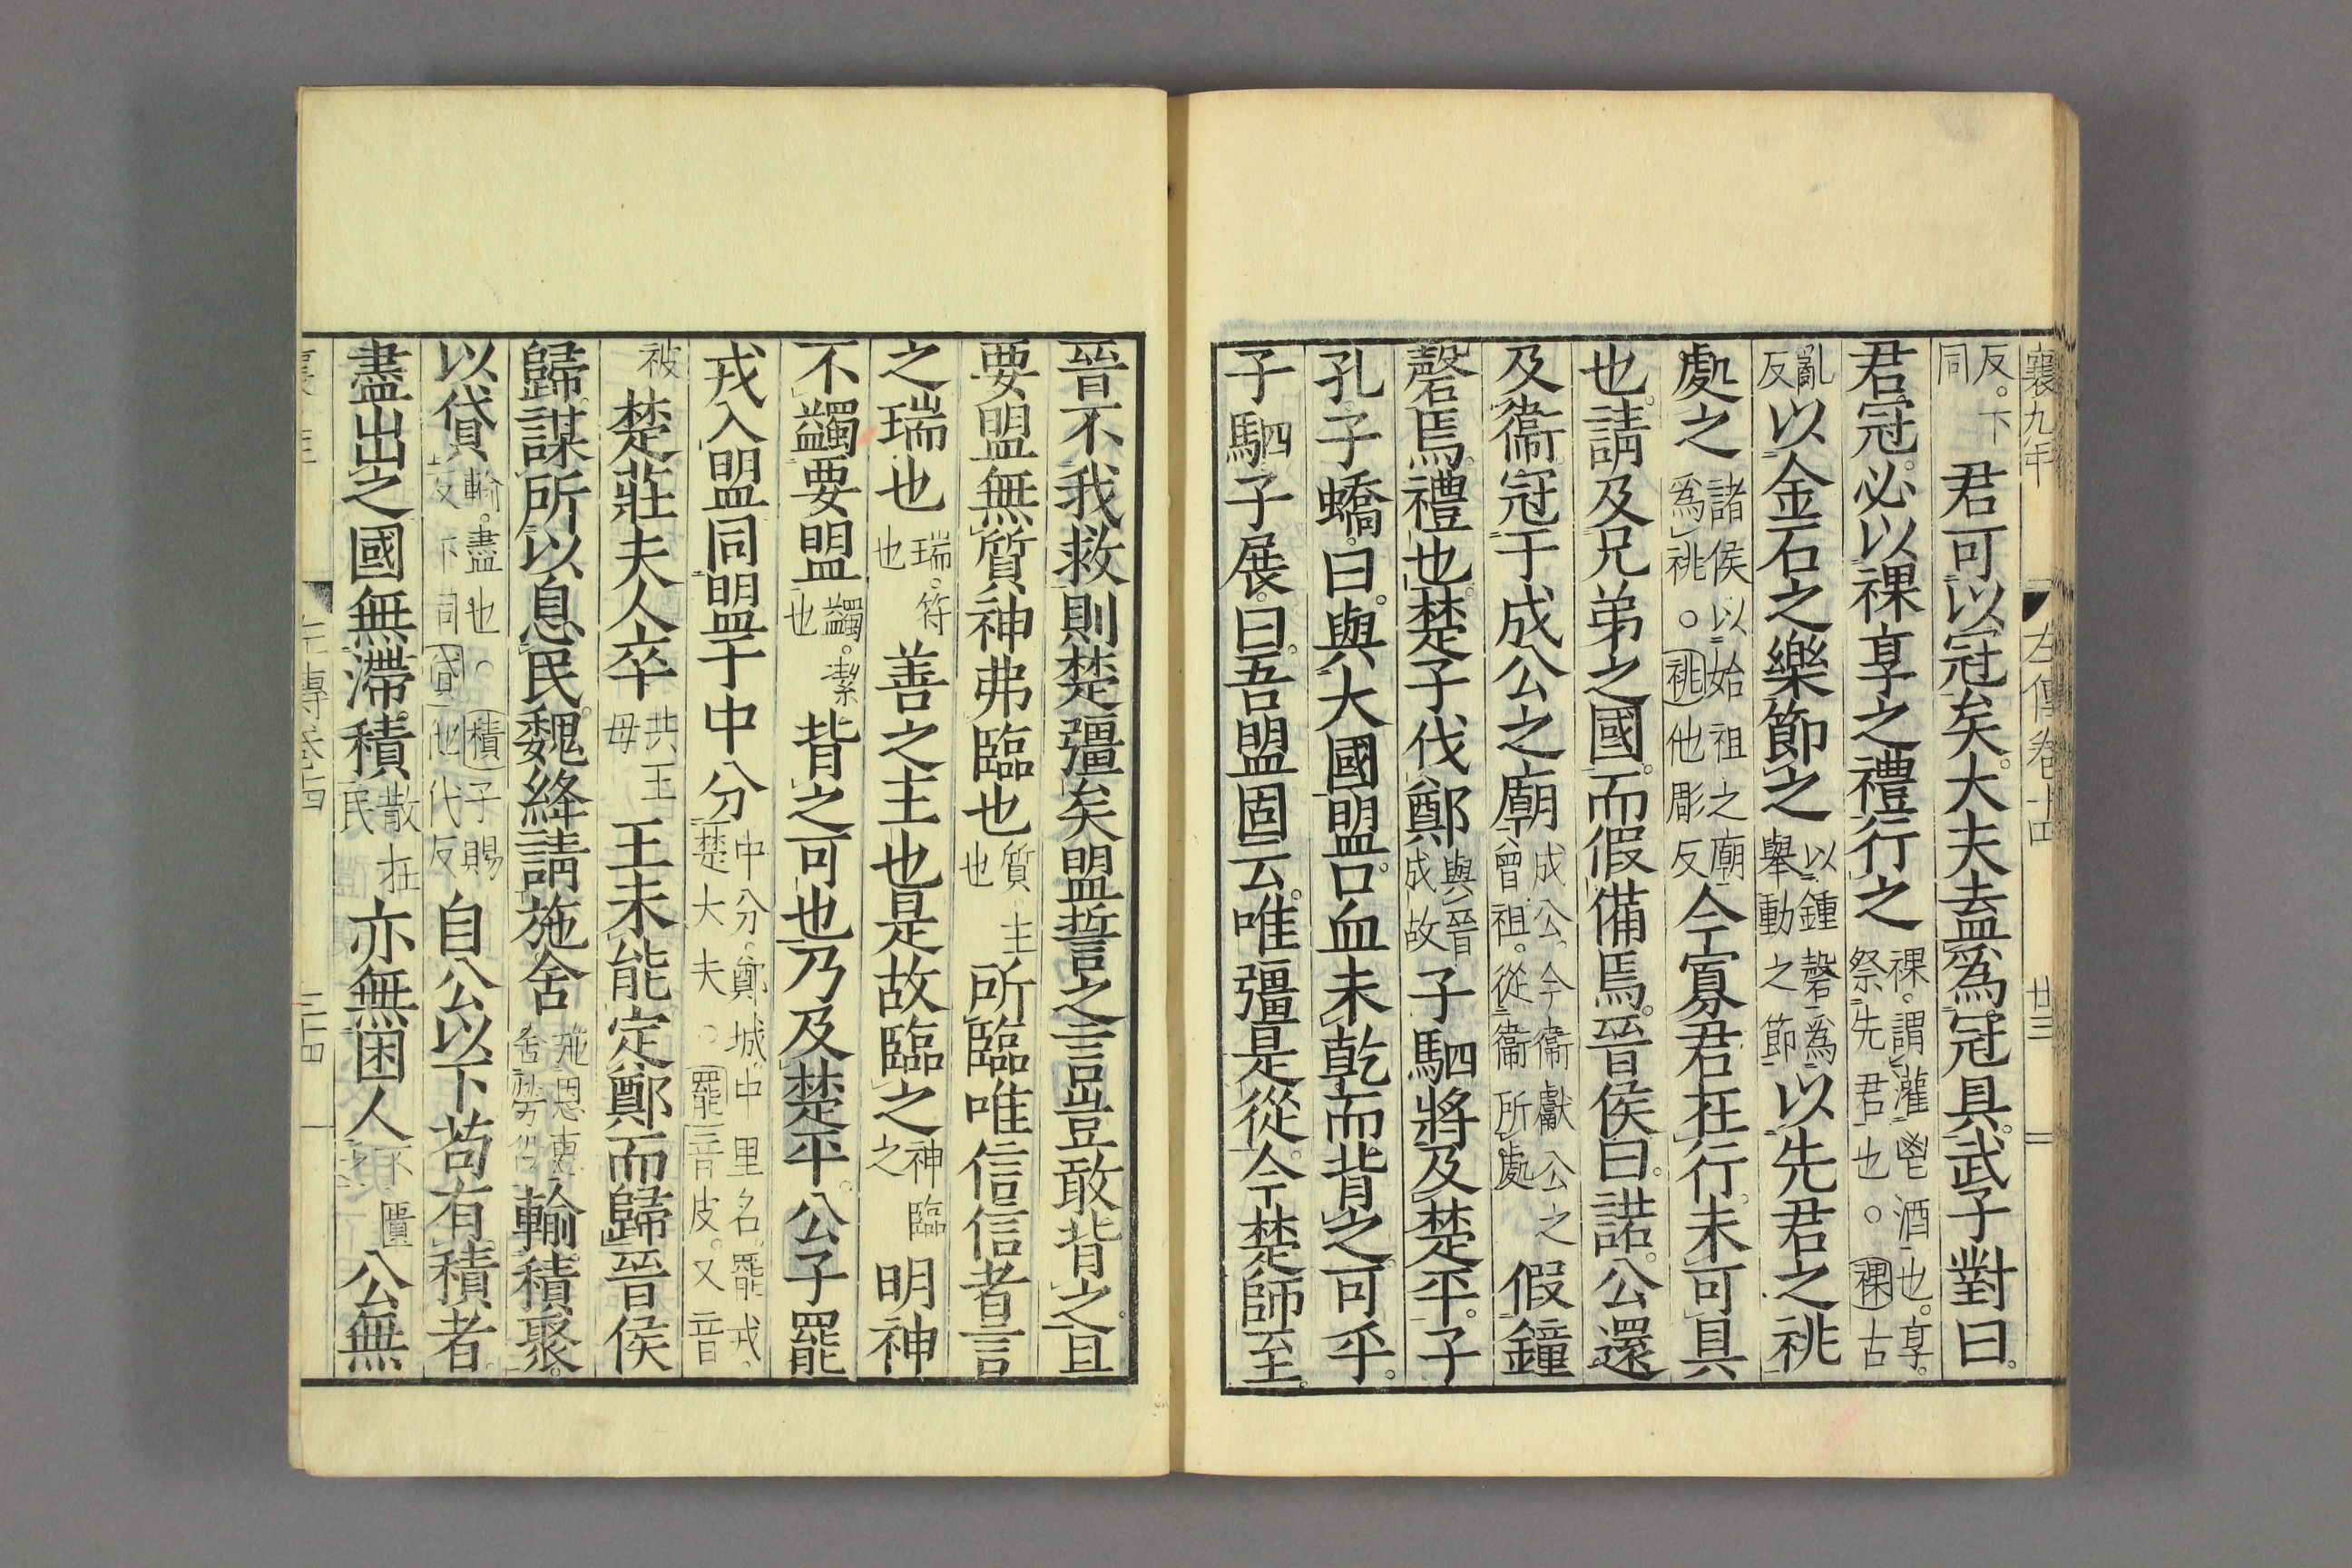 襄九年 左傳卷十四 廿三
反。下同君可以冠矣。大夫盍爲冠具。武子對曰。
君冠。必以祼享之禮行之祼。謂灌鬯酒也。享。祭先君也。○祼古
亂反以金石之樂節之以鍾磬爲舉動之節以先君之祧
處之諸侯以始祖之廟爲祧。○祧他彫反今寡君在行。未可具
也。請及兄弟之國。而假備焉。晉侯曰。諾。公還
及衞。冠于成公之廟成公。今衞獻公之曾祖。從衞所處假鐘
磬焉。禮也。楚子伐鄭與晉成故子駟將及楚平。子
孔子蟜曰。與大國盟。口血未乾而背之。可乎。
子駟子展。曰。吾盟固云。唯彊是從。今楚師至。
晉不我救則楚彊矣盟誓之言豈敢背之。且
要盟無質神弗臨也質。主也所臨唯信信者言
之瑞也瑞。符也善之主也是故臨之神臨之明神
不蠲要盟蠲。潔也背之可也乃及楚平。公子罷
戎入盟同盟于中分中分。鄭城中里名。罷戎。楚大夫。○罷音皮。又音
被楚莊夫人卒共王母王未能定鄭而歸晉侯
歸。謀所以息民。魏絳請施舍施恩惠舍勞役輸積聚。
以貸輸。盡也。積子賜反下同貸他代反自公以下苟有積者。
盡出之國無滯積散在民亦無困人不匱之公無
左傳卷十四 二十四